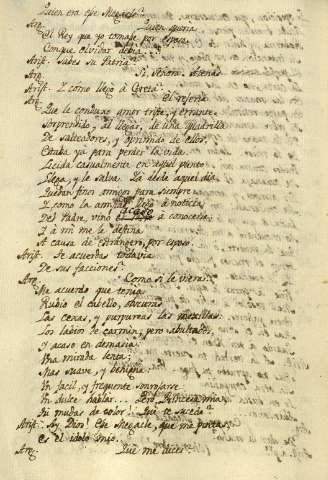 Quien era ese Megacle?
Arg. Quien queria
El Rey que yo tomase por esposo.
Conque olvidar debia...?
Arist. Sabes su Patria?
Arg. Si, señora: Atenas
Arist. Y como llegó à Creta?
Arg. El referia
Que le conduxo amor triste, y errante:
Sorprendido, al llegar, de una quadrilla
De salteadores, y oprimido de ellos,
Estaba ya para perder la vida.
Licida casualmente en aquel punto
Llega, y le salva. Ya desde aquel dia
Quedan finos amigos para siempre
Y como la amistad llegó à noticia
Del Padre, vino acaso à conocerle;
Y à mi me le destina
A causa de extrangero, por esposo.
Arist. Te acuerdas todavia
De sus facciones?
Arg. Como si le viera.
Me acuerdo que tenia
Rubio el cabello, obscuras
Las cejas, y purpureas las mexillas.
Los labios de carmin, pero abultados,
Y acaso en demasia.
Una mirada lenta;
Mas suave, y benigna.
Un facil, y frequente sonrojarse
Un dulce hablar... Pero, Princesa mia
Tu mudas de color! Qué te sucede?
Arist. Ay, Dios! Ese Megacle, que me pintas,
Es el idolo mio.
Arg. Qué me dices?